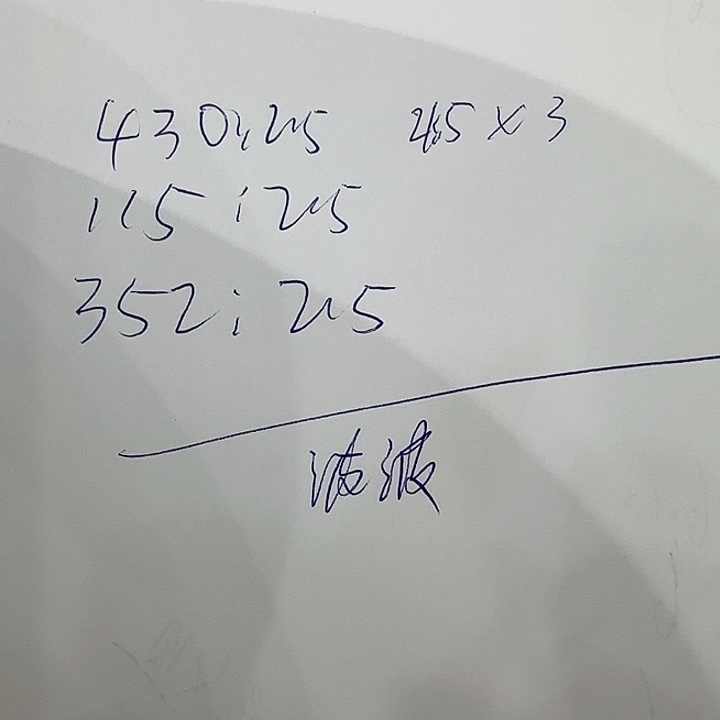 430:2.5 45×3
115:2.5
352:2.5
波波